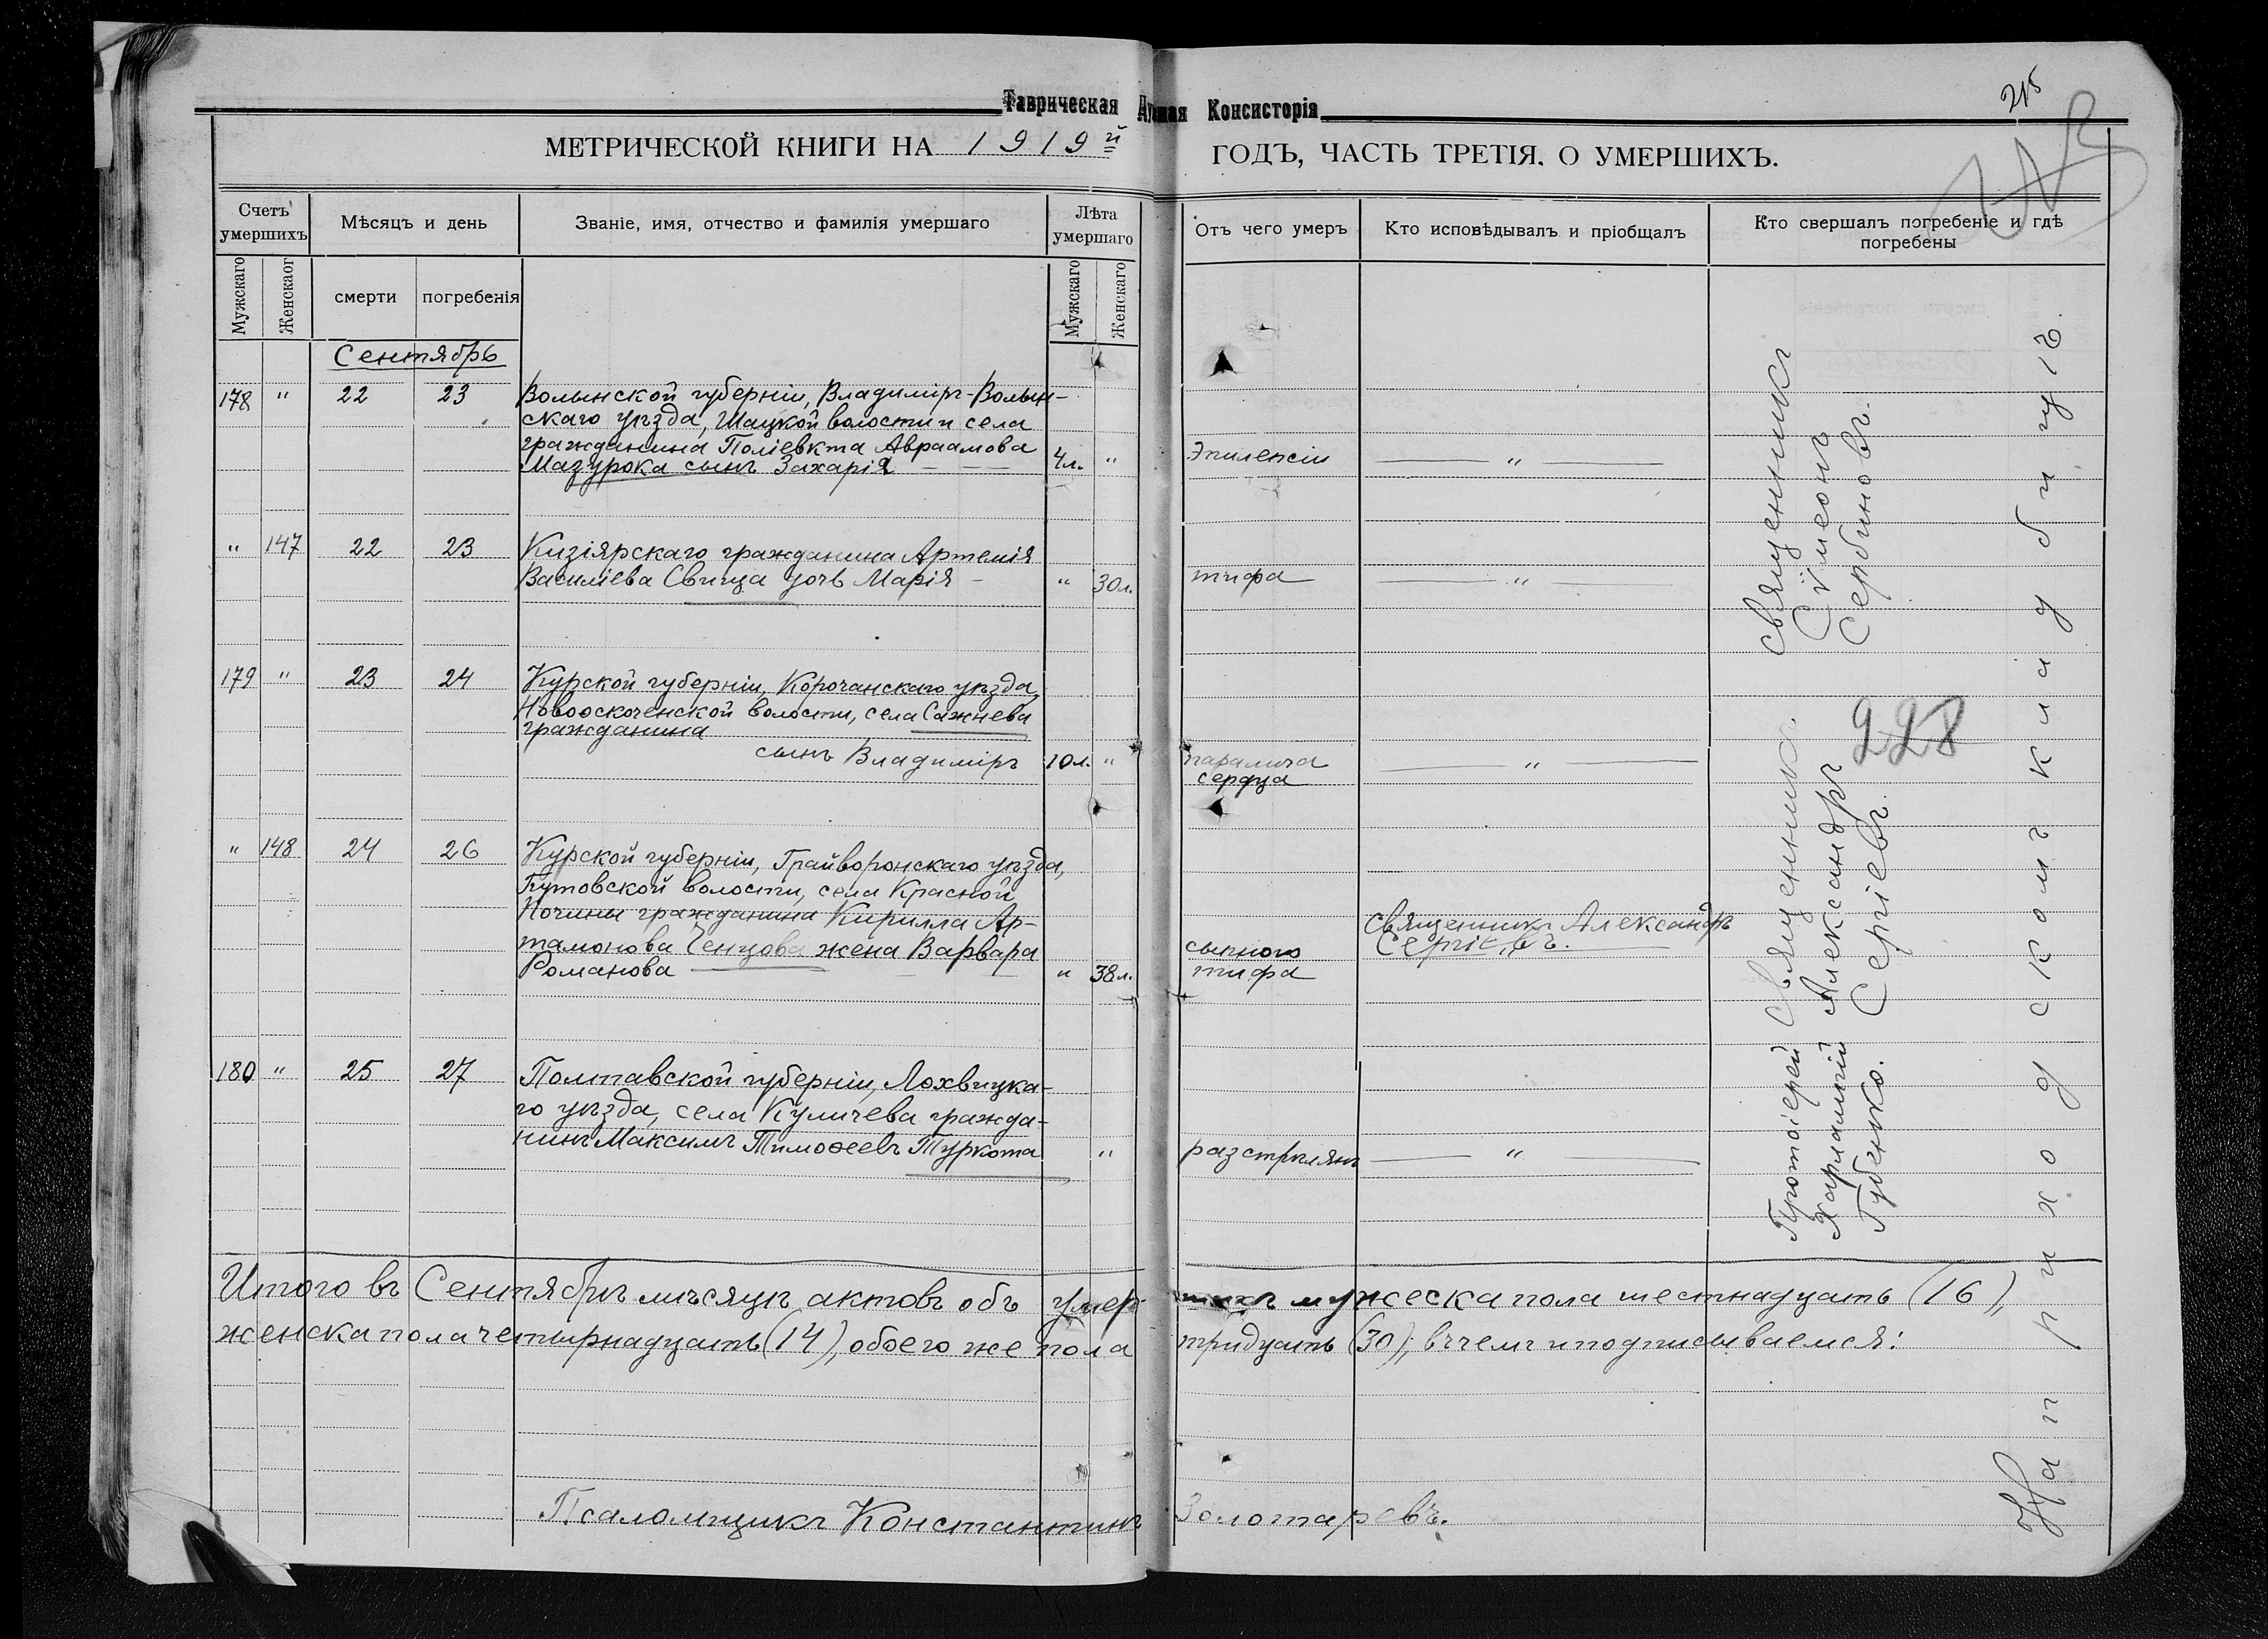 Таврическая Духовная Консисторія
215
МЕТРИЧЕСКОЙ КНИГИ НА 1919й ГОДЪ, ЧАСТЬ ТРЕТІЯ. О УМЕРШИХЪ.
Счетъ умершихъ
Мѣсяцъ и день
Званіе, имя, отчество и фамилія умершаго
Лѣта умершаго
Отъ чего умеръ
Кто исповѣдывалъ и пріобщалъ
Кто свершалъ погребеніе и гдѣ погребены
Мужскаго
Женскаог
смерти
погребенія
Мужскаго
Женскаго
Сентябрь
178 " 22 23 Волынской губерніи, Владиміръ-Волын-
скаго уѣзда, Шацкой волости и села
гражданина Поліевкта Авраамова
Мазурока сынъ Захарія 4л. " Эпилепсіи "
" 147 22 23 Кизіярскаго гражданина Артемія
Василіева Свища дочь Марія " 30л. тифа "
179 " 23 24 Курской губерніи, Корочанскаго уѣзда,
Новооскоченской волости, села Сажнева
гражданина
сынъ Владиміръ 10л. " паралича
сердца "
" 148 24 26 Курской губерніи, Грайворонскаго уѣзда,
Бутовской волости, села Красной
Почины гражданина Кирилла Ар-
тамонова Ченцова жена Варвара
Романова " 38л. сыпного
тифа
священникъ Александръ
Сергіевъ.
180 " 25 27 Полтавской губерніи, Лохвицка-
го уѣзда, села Куличева гражда-
нинъ Максимъ Тимоѳеевъ Туркота " разстрѣлянъ "
священникъ
Сѵмеонъ
Сербиновъ.
228
Священникъ
Александръ
Сергіевъ.
Протоіерей
Харлампій
Губенко.
На приходскомъ кладбищѣ.
Итого въ Сентябрѣ мѣсяцѣ актовъ объ умершихъ мужеска пола шестнадцать (16),
женска пола четырнадцать (14), обоего же пола тридцать (30); въ чемъ и подписываемся:
Псаломщикъ Константинъ Золотаревъ.